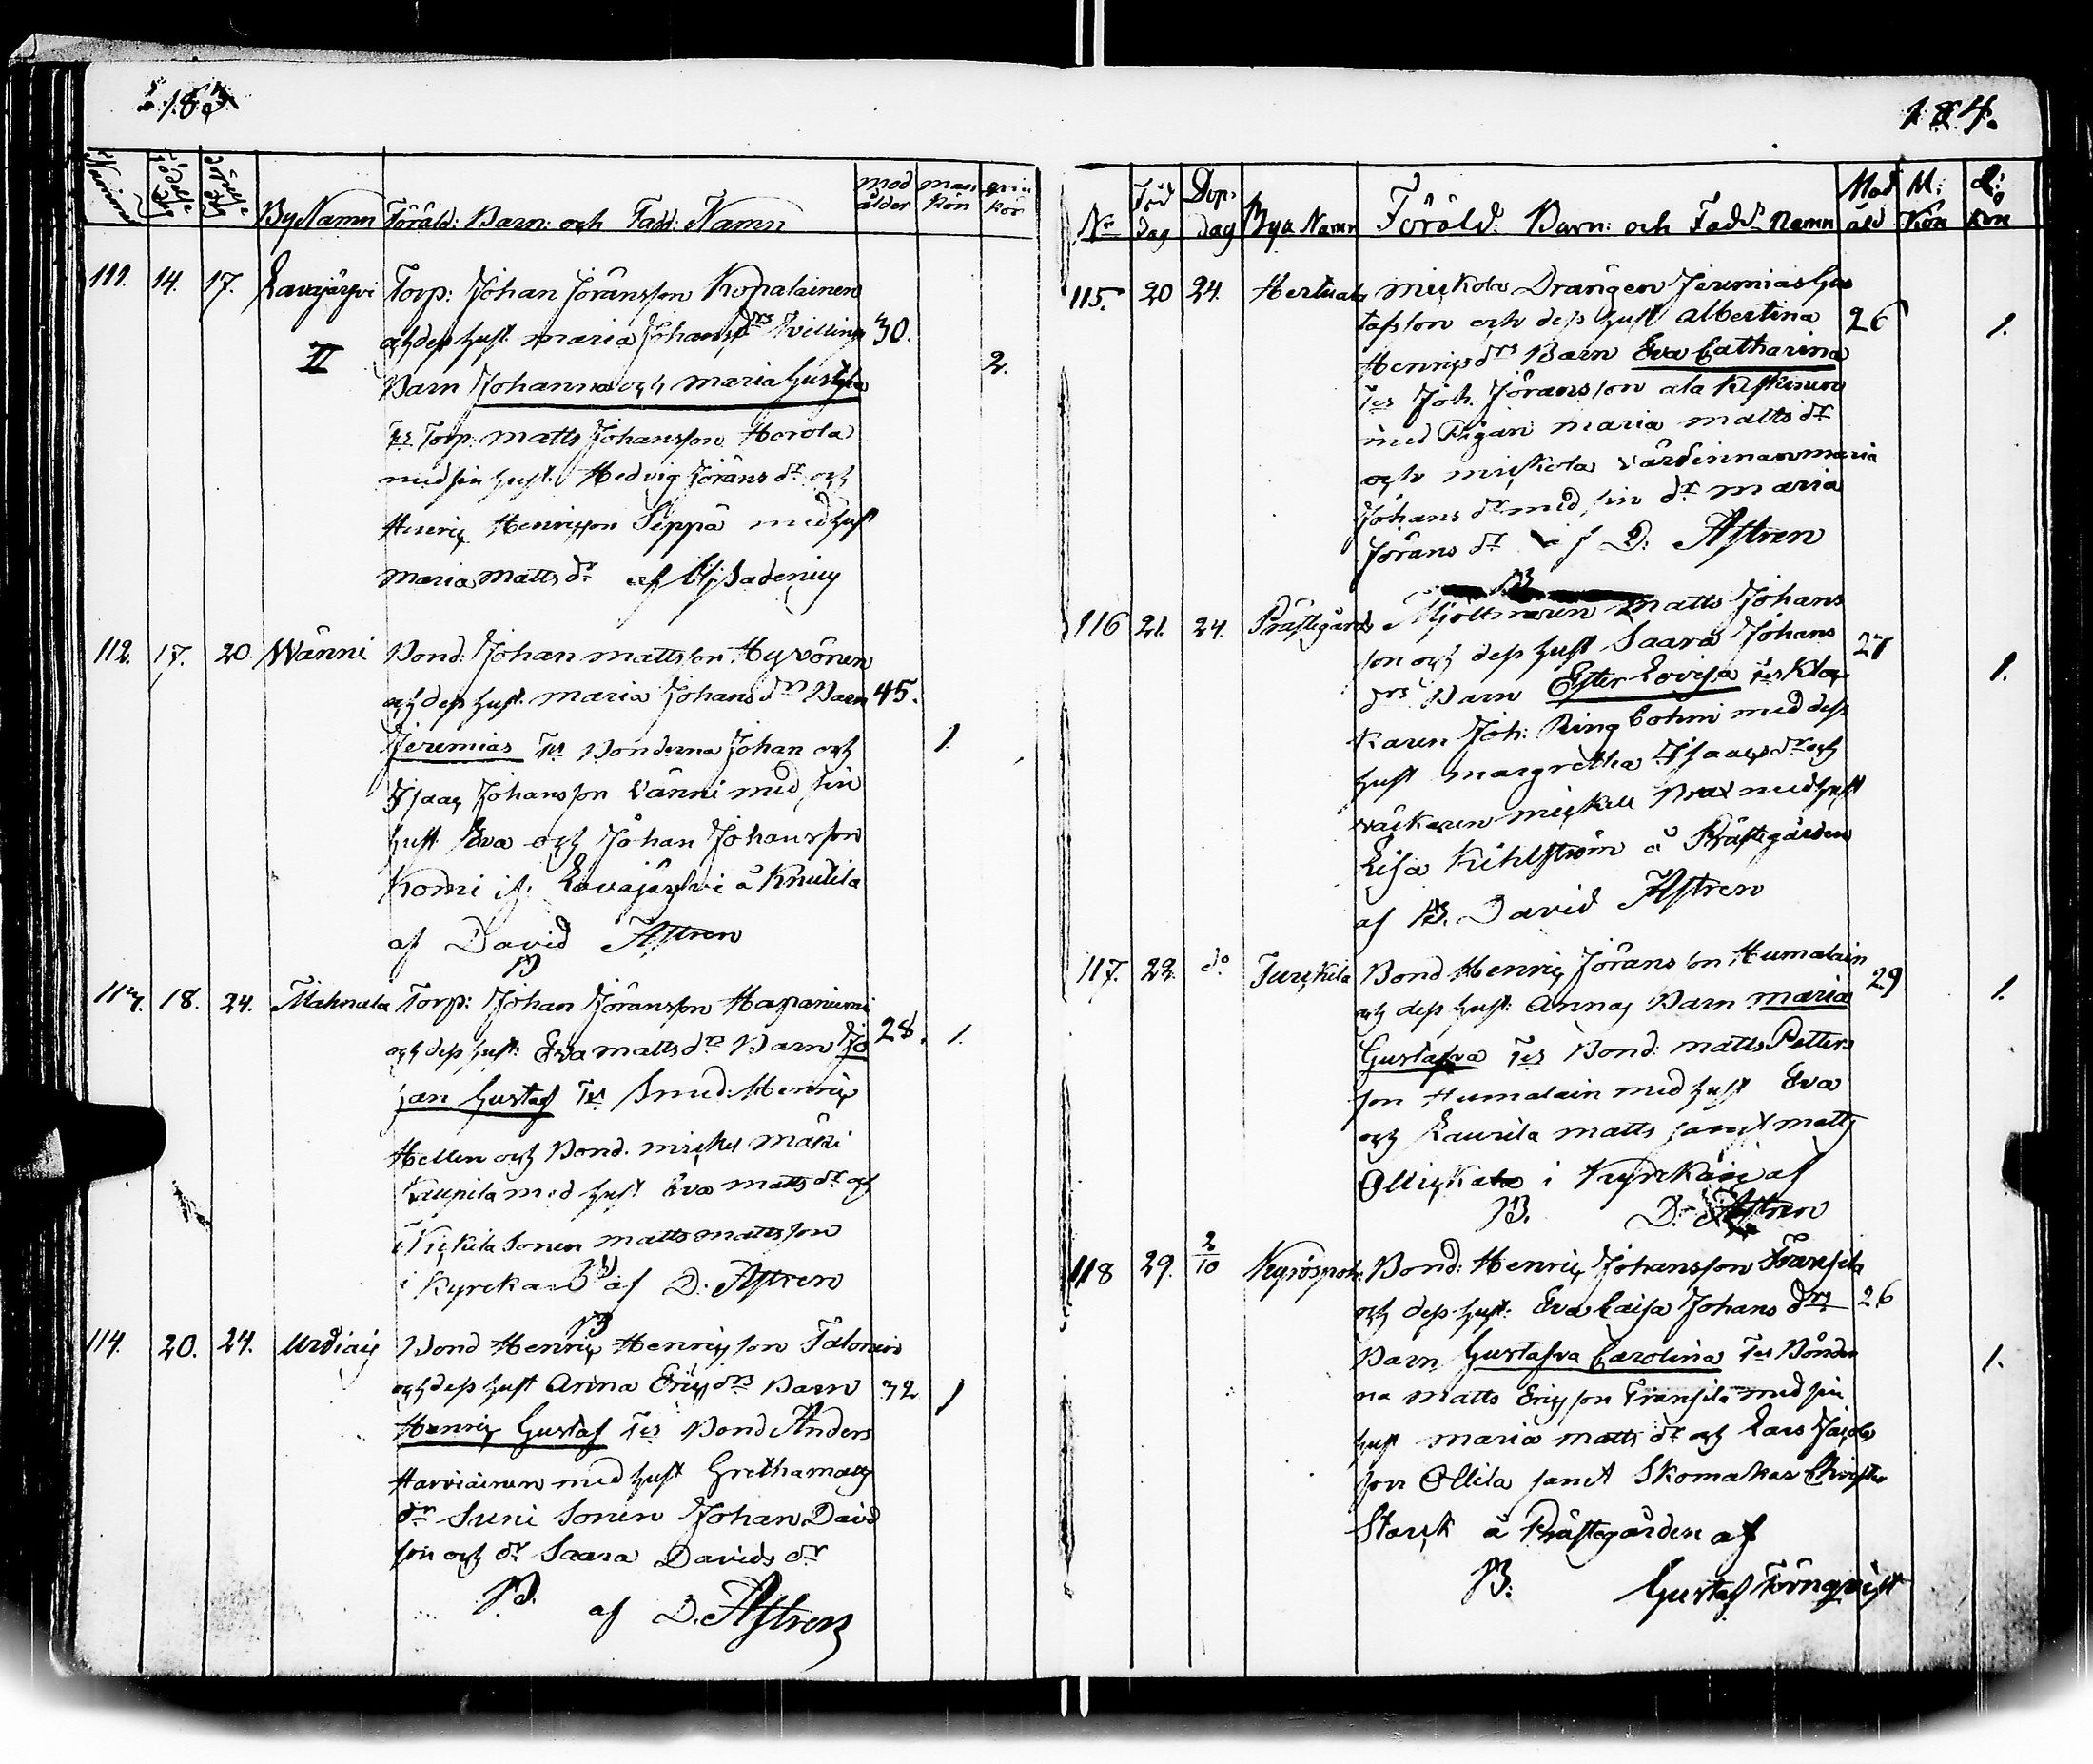 183
184.
Nummer Födelse dag döpelse dag By Namn Föräld: Barn: och Fadd: Namn mod ålder man kön qvin kön
111. 14. 17. Lavajärfvi Torp: Johan Jöransson Kopalainen
och dess hust. maria Johansdrs Tvilling 30.
II Barn Johanna och maria Gustafva 2.
Ts Torp. matts Johansson Horola
med sin hust. Hedvig Jöransdr och
Henric Henricsson Seppä med hust
maria mattsdr af
112. 17. 20. Wänni Bond. Johan mattsson Hyvönen
och dess hust. maria Johansdrs Barn 45.
Jeremias Ts Bönderna Johan och 1.
Isaac Johansson Vänni med sin
hust Eva och Johan Johansson
Komi if. Lavajärfvi å Knutila
af David Astren
B
113. 18. 24. Mahnala Torp: Johan Jöransson Hapaniemi
och dess hust: Eva mattsdrs Barn Jo 28. 1.
han Gustaf Ts Smed: Henric
Hellen och Bond. mickel mäki
Kaupila med hust Eva mattsdr och
Kickila Sonen matts mattsson
i Kyrckan af D. Astren
B
114. 20. 24. Urdiain Bond Henric Henricsson Talonen
och dess hust Anna Ericsdrs Barn 32 1
Henric Gustaf Ts Bond Anders
Harviainen med hust Gretha matts
dr Suni Sonen Johan David
son och dr Saara Davids dr
B. af D. Astren
No Föd dag Dop: dag Bya Namn Föräld: Barn: och Fadd: Namn Mod åld M: Kön Q: Kön
115. 20 24. Herttuala mickola Drängen Jeremias Gus
tafsson och dess hust albertina 26 1.
Henricsdrs Barn Eva Catharina
Ts Joh. Jöransson ala Kiskinen
med Pigan maria mattsdr
och mickola värdinnan maria
Johansdr med sin dr maria
Jöransdr af D. Astren
B
116 21. 24. Prästegårds Mjölnaren matts Johans
son och dess hust Saara Johans 27 1.
drs Barn Ester Lovisa Ts Kloc
karen Joh: Ringbohm med dess
hust margretha Isaacsdr och
väckaren mickell Brax med hust
Lisa Kihlström å Prästegården
af B. David Astren
117. 22. do Turckila Bond Henric Jöransson Humalain 29 1.
och dess hust: Annas Barn maria
Gustafva Ts Bond: matts Petters
son Humalain med hust Eva
och Laurila matts samt matts
Ollickala i Kyrckan af
B. D. Astren
118 29. 2/10 Kyröspoh: Bond: Henric Johansson Fransila
och dess hust. Eva Caisa Johansdrs 26
Barn Gustafva Carolina Ts Bönder 1.
na matts Ericsson Fransila med sin
hust maria mattsdr och Lars Jacobs
son Ollila samt Skomakar Christer
Starck å Prästegården af
B. Gustaf Törnqvist